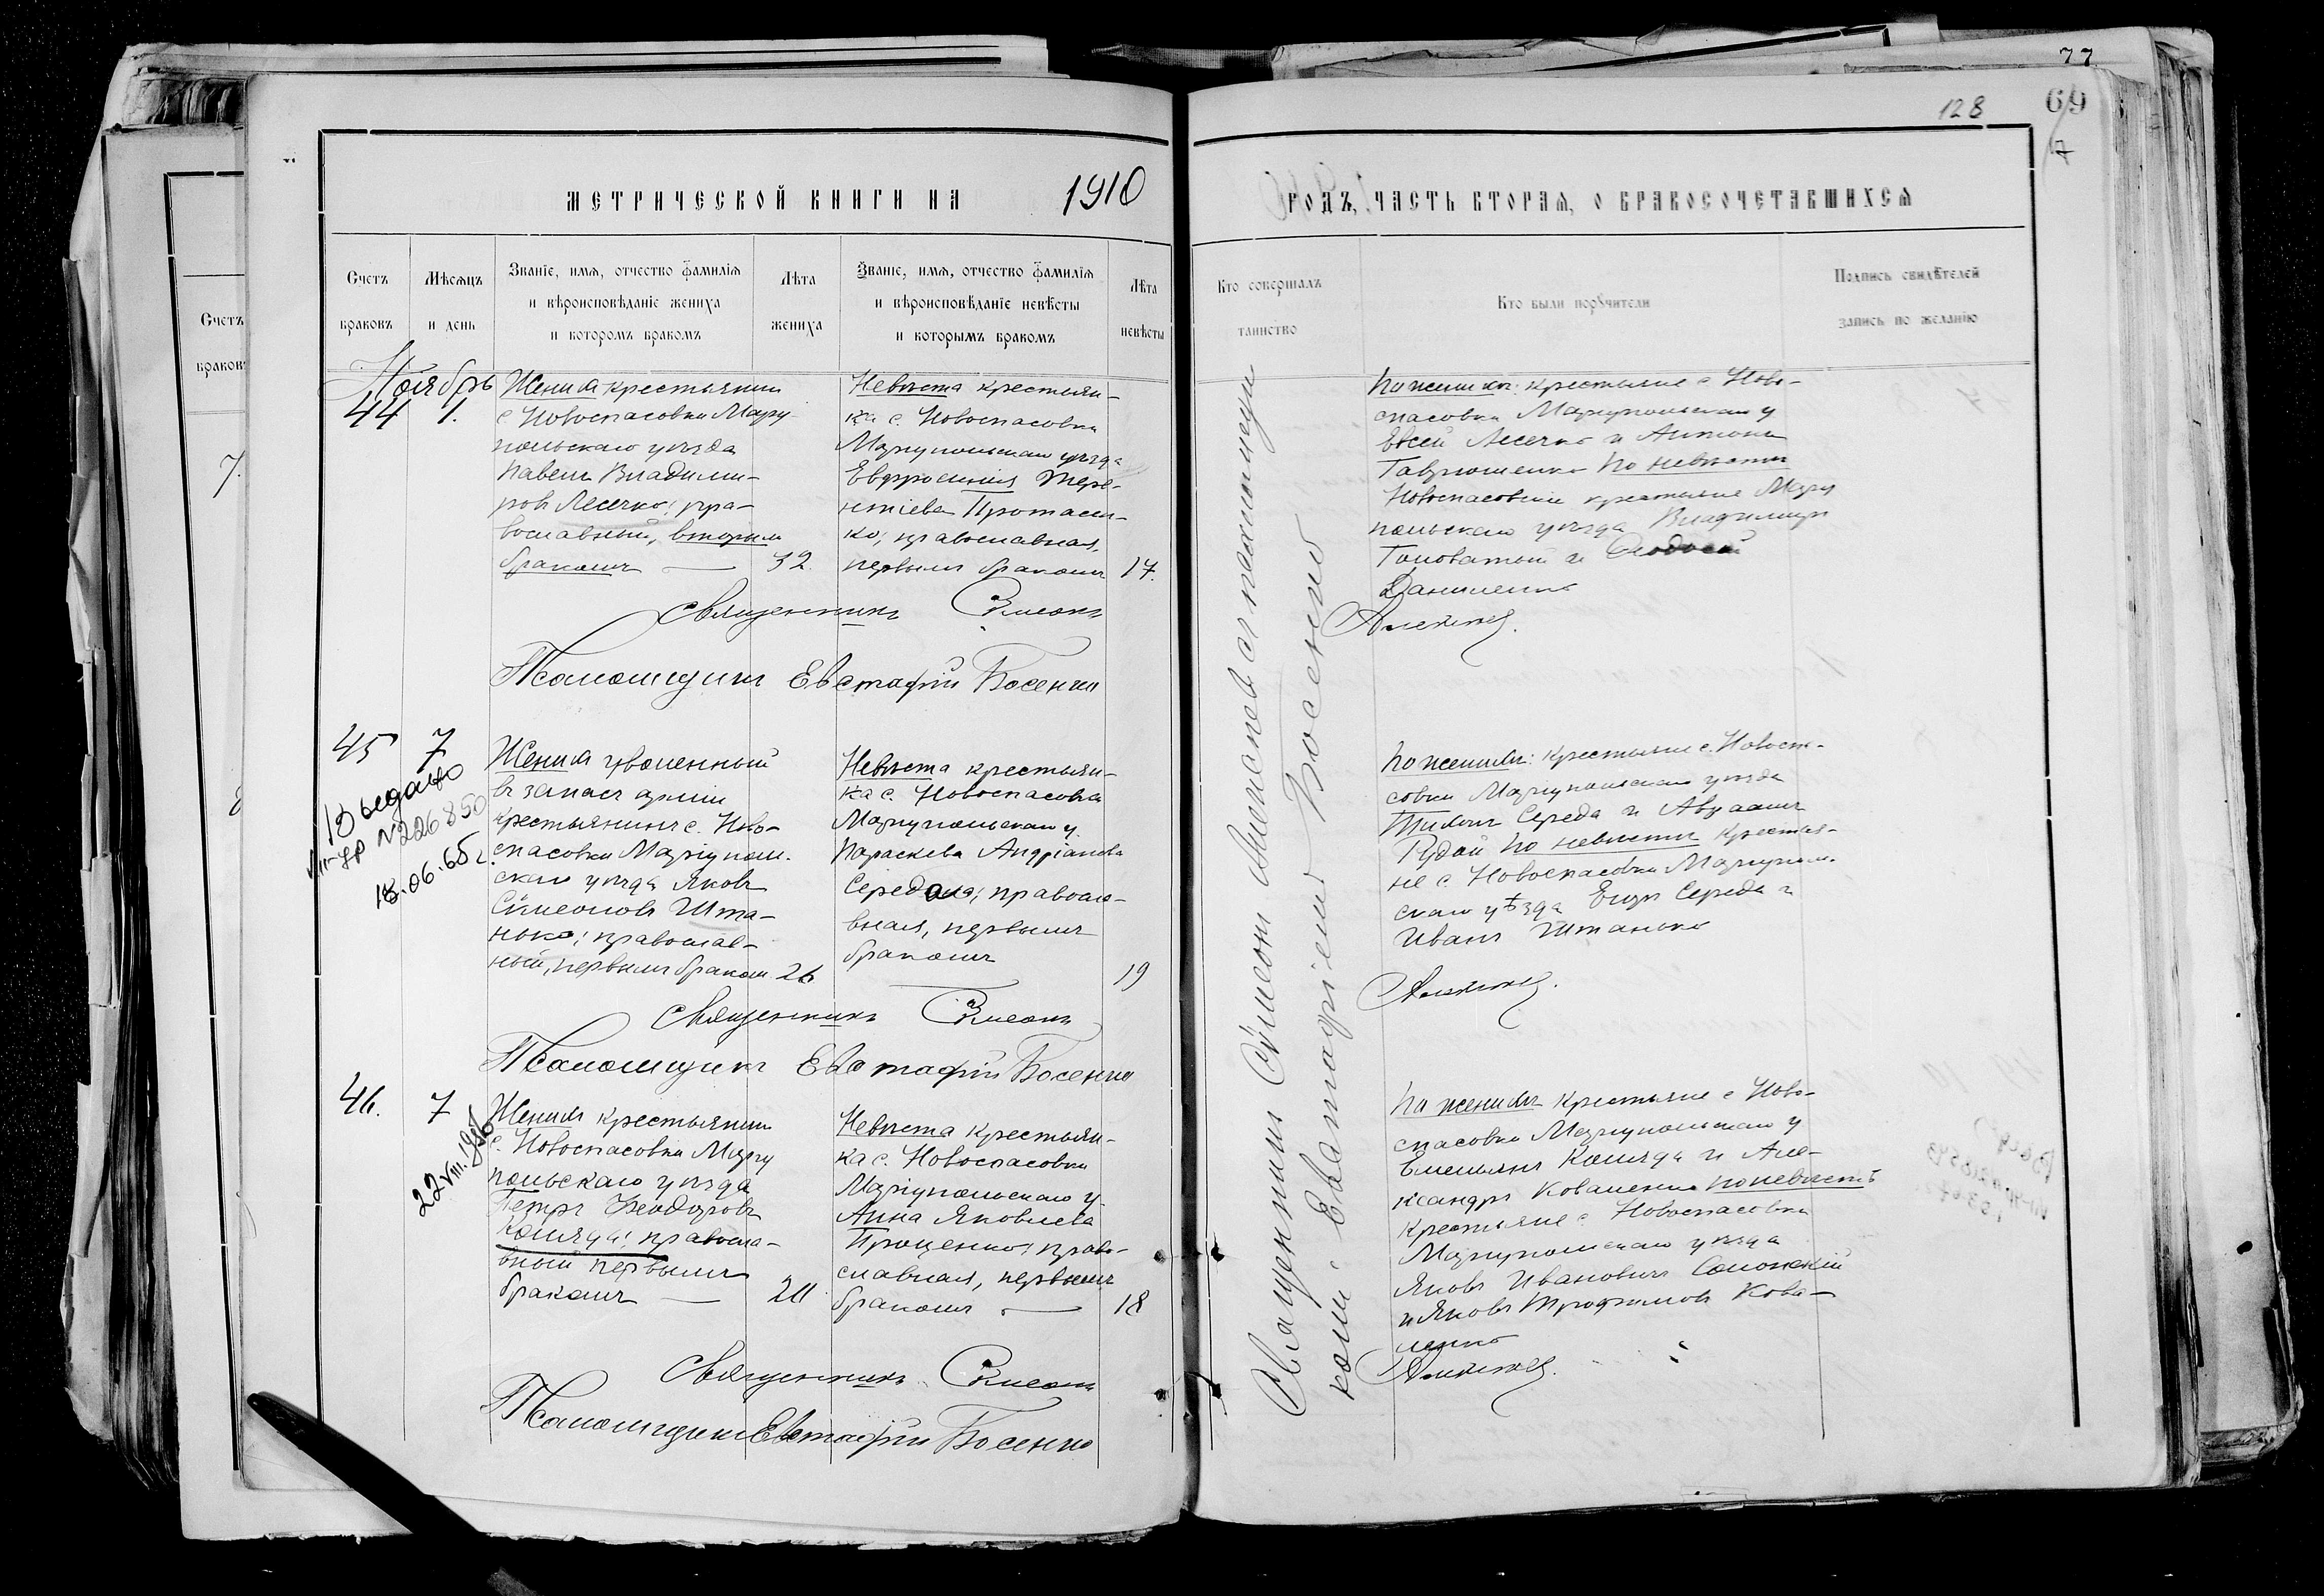 77
128
69
7
МЕТРИЧЕСКОЙ КНИГИ НА 1910
ГОДЪ, ЧАСТЬ ВТОРАЯ, О БРАКОСОЧЕТАВШИХСЯ
Счетъ
браковъ
Мѣсяцъ
и день
Званіе, имя, отчество фамилія
и вѣроисповѣданіе жениха
и которомъ бракомъ
Лѣта
жениха
Званіе, имя, отчество фамилія
и вѣроисповѣданіе невѣсты
и которымъ бракомъ
Лѣта
невѣсты
Кто совершалъ
таинство
Кто были поручители
Подпись свидѣтелей
запись по желанію
Счетъ
браков
7.
Ноябрь
44
1.
Жених крестьянин
с Новоспасовки Мариу-
польскаго уѣзда
Павелъ Владими-
ровъ Лесечко; пра-
вославный, вторым
бракомъ — 32.
Невѣста крестьян-
ка с. Новоспасовки
Мариупольскаго уѣзда
Евфросинія Тере-
нтіева Протасен-
ко; православная,
первымъ бракомъ 17.
Священникъ Сѵмеонъ
Псаломщикъ Евстафій Босенко
По жениху: крестьяне с Ново-
спасовки Мариупольскаго у
Евсей Лесечко и Антонъ
Гаврюшенко По невѣсте
Новоспасовскіе крестьяне Мариу
польскаго уѣзда Владимиръ
Головатый и Феодосій
Даниленко
45
7
Выдано
№226850
18.06.65 г.
Жених уволенный
въ запасъ арміи
крестьянинъ с. Ново-
спасовки Маріупол-
скаго уѣзда Яковъ
Сѵмеоновъ Шта-
нько; православ-
ный, первымъ браком 26
Невѣста крестьян-
ка с. Новоспасовки
Маріупольскаго у.
Параскева Андріанова
Середа; правосла-
вная, первымъ
бракомъ
19
Священникъ Сѵмеонъ
Псаломщикъ Евстафій Босенко
По жениху: крестьяне с. Новоспа-
совки Маріупольскаго уѣзда
Тихонъ Середа и Авраамъ
Рудой По невѣсте крестья-
не с. Новоспасовки Маріуполь-
скаго уѣзда Егоръ Середа и
Иванъ Штанько
46.
7
22.VIII.1956
Жених крестьянин
с. Новоспасовки Мариу
польскаго уѣзда
Петръ Феодоровъ
Коляда; правосла-
вный первымъ
бракомъ — 20
Невѣста крестьян-
ка с. Новоспасовки
Маріупольскаго у.
Анна Яковлева
Проценко; право-
славная, первымъ
бракомъ — 18
Священникъ Сѵмеонъ
Псаломщикъ Евстафій Босенко
По жениху крестьяне с Ново-
спасовки Маріупольскаго у
Емельянъ Коляда и Але-
ксандръ Коваленко по невѣстѣ
крестьяне с Новоспасовки
Маріупольскаго уѣзда
Яковъ Ивановичъ Солонскій
и Яковъ Трофимовъ Кова-
ленко
Священникъ Сѵмеонъ
съ псаломщи
комъ Евстафіемъ Босенко